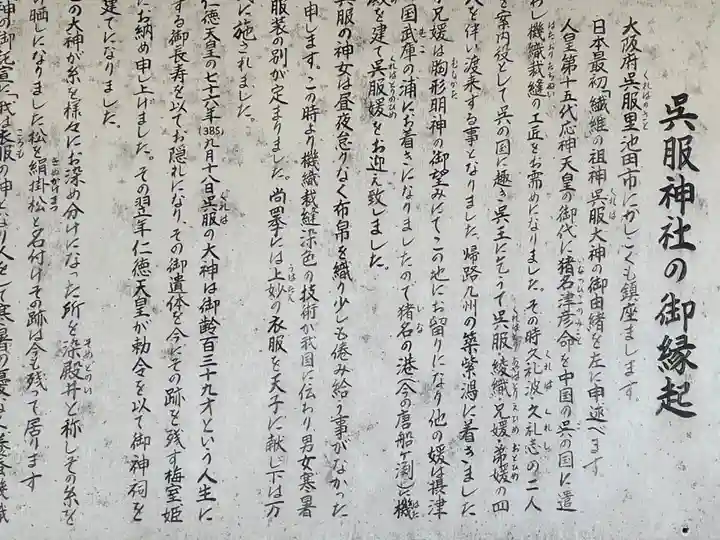 呉服神社の御縁起
大阪府呉服里池田市にかしこくも鎮座まします。
日本最初「繊維の祖神呉服大神の御由緒を左に申述べます
人皇第十五代応神天皇の御代に猪名津彦命を中国の呉の国に遣
わし機織裁縫の工匠をお需めになりました。その時久礼波久礼志の二人
を案内役として呉の国に趣き呉王に乞うて呉服綾織兄媛弟媛の四
人を伴い渡来する事となりました。帰路九州の築紫潟に着きました
兄媛は胸形明神の御望みにてこの地にお留りになり他の媛は摂津
国武庫の浦にお着きになりましたので猪名の港(今の唐船ヶ渕)に機
殿を建て呉服媛をお迎え致しました。
呉服の神女は昼夜怠りなく布帛を織り少しも倦み給う事がなかった
申します。この時より機織裁縫染色の技術が我国に伝わり男女寒暑
服装の別が定まりました。尚畢には上妙の衣服を天子に献じ下は万
に施されました。
仁徳天皇の七十六年(385)九月十八日呉服の大神は御齢百三十九才という人生に
する御長寿を以てお隠れになり、その御遺体を今にその跡を残す梅室姫
にお納め申し上げました。その翌年仁徳天皇が勅令を以て御神祠を
建てになりました。
の大神が糸を様々にお染め分けになった所を染殿井と称しその糸を
晒しになりました松を絹掛松と名付けその跡は今も残って居ります
神の御託宣に「我は衣服の神となり人をして寒暑の憂なく養蚕機織